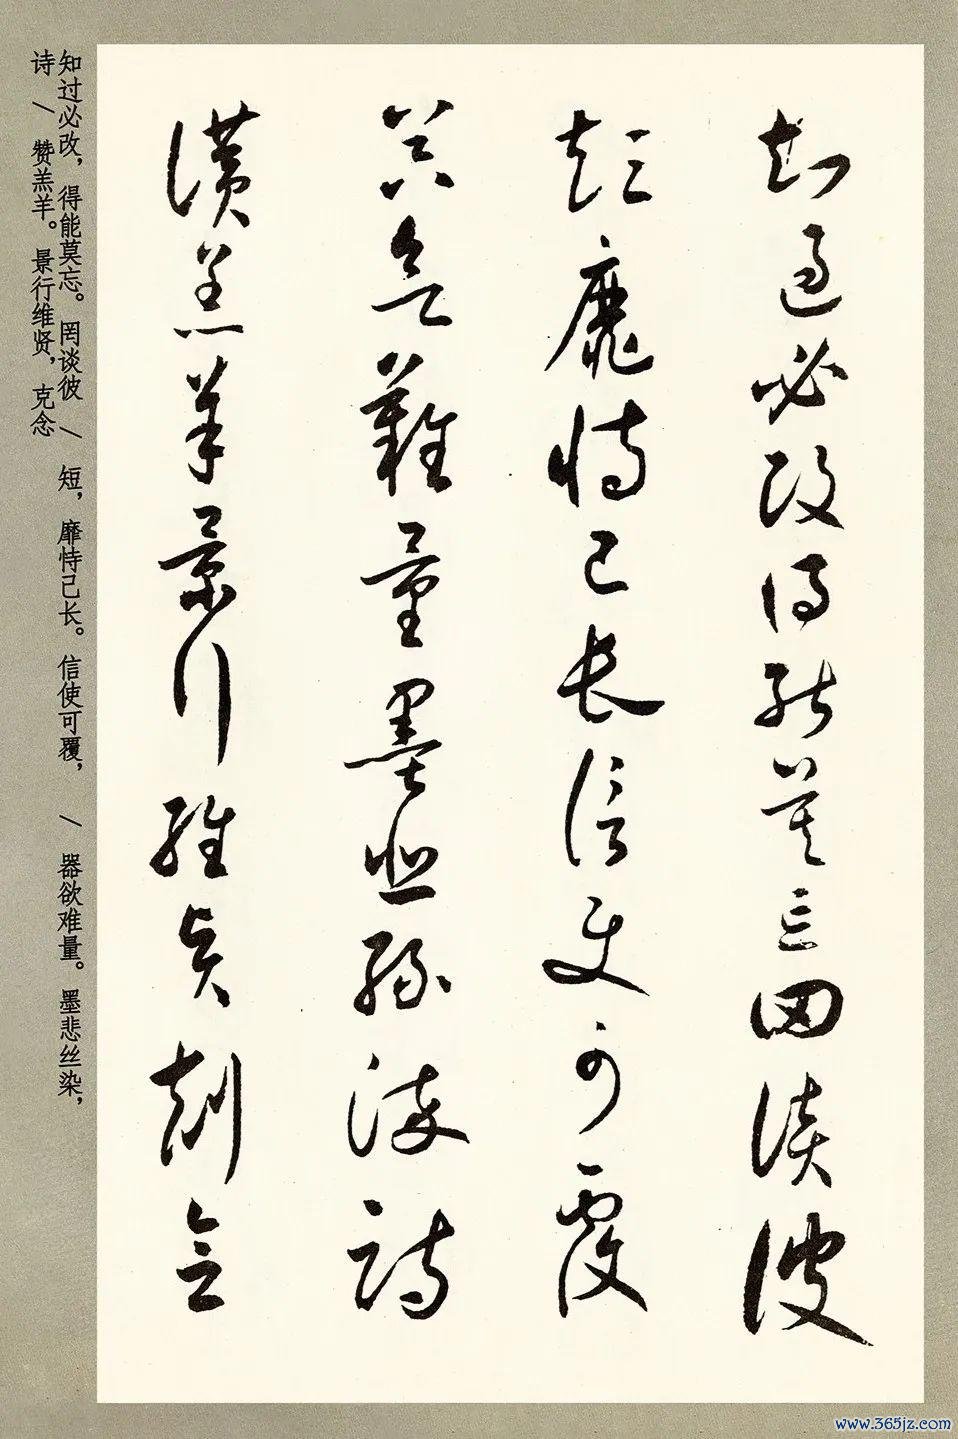 知過必改得能莫忘罔談彼
短靡恃己長信使可覆
器欲難量墨悲絲染詩
讃羔羊景行維賢剋念
知过必改，得能莫忘。罔谈彼 / 短，靡恃己长。信使可覆， / 器欲难量。墨悲丝染，
诗 / 赞羔羊。景行维贤，克念
www.365jz.com